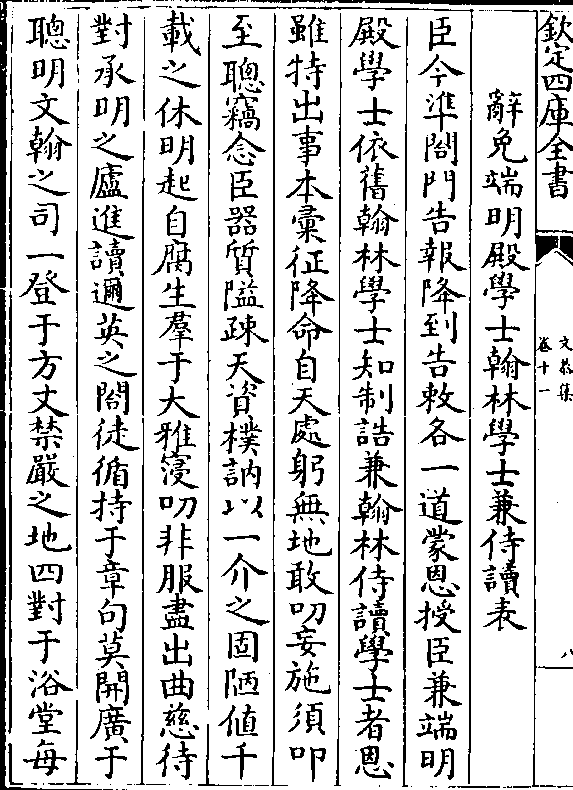 欽定四庫全書
文恭集
卷十一
八
辭免端明殿學士翰林學士兼侍讀表
臣今準閤門告報降到告敕各一道蒙恩授臣兼端明
殿學士依舊翰林學士知制誥兼翰林侍讀學士者恩
雖特出事本彙征降命自天處躬無地敢叨妄施須叩
至聰竊念臣器質隘疎天資樸訥以一介之固陋値千
載之休明起自腐生羣于大雅寖叨非服盡出曲慈待
對承明之廬進讀邇英之閤徒循持于章句莫開廣于
聰明文翰之司一登于方丈禁嚴之地四對于浴堂每